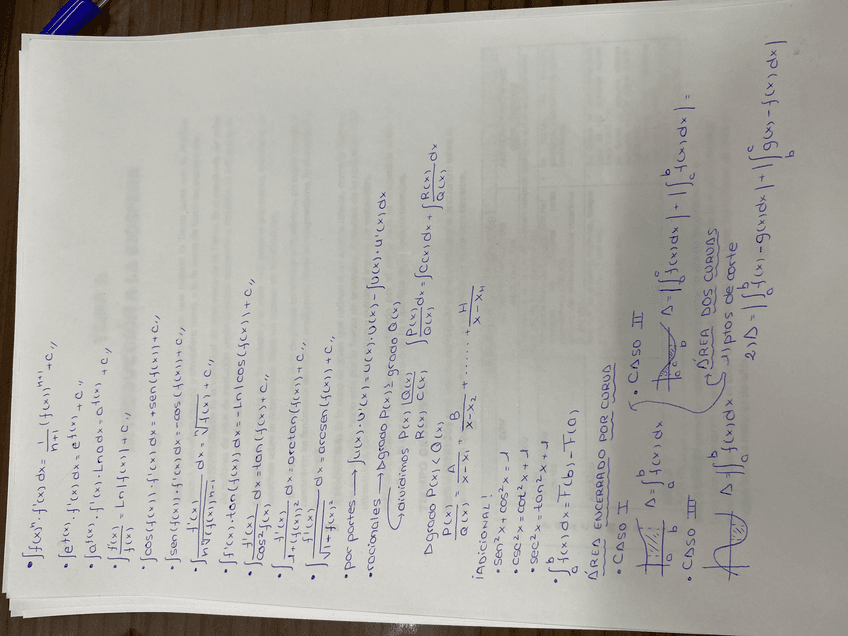 • ∫f(x)ⁿ · f'(x) dx = 1/(n+1) (f(x))ⁿ⁺¹ + C,,
• ∫e^f(x) · f'(x) dx = e^f(x) + C,,
• ∫a^f(x) · f'(x) · Ln a dx = a^f(x) + C,,
• ∫f'(x)/f(x) = Ln|f(x)| + C,,
• ∫cos(f(x)) · f'(x) dx = +sen(f(x)) + C,,
• ∫sen(f(x)) · f'(x) dx = -cos(f(x)) + C,,
• ∫f'(x)/(n ⁿ√(f(x))ⁿ⁻¹) dx = ⁿ√f(x) + C,,
• ∫f'(x) · tan(f(x)) dx = -Ln|cos(f(x))| + C,,
• ∫f'(x)/cos²f(x) dx = tan(f(x)) + C,,
• ∫f'(x)/(1+(f(x))²) dx = arctan(f(x)) + C,,
• ∫f'(x)/√(1+f(x)²) dx = arcsen(f(x)) + C,,
• por partes → ∫u(x) · v'(x) = u(x) · v(x) - ∫v(x) · u'(x) dx
• racionales → Δgrado P(x) ≥ grado Q(x)
dividimos P(x) |Q(x) R(x) C(x) ∫P(x)/Q(x) dx = ∫C(x) dx + ∫R(x)/Q(x) dx
Δgrado P(x) < Q(x)
P(x)/Q(x) = A/(x-x₁) + B/(x-x₂) + ...... + H/(x-xₙ)
¡ADICIONAL!
• sen²x + cos²x = 1
• csc²x = cot²x + 1
• sec²x = tan²x + 1
• ∫ₐᵇ f(x) dx = F(b) - F(a)
ÁREA ENCERRADO POR CURVA
• CASO I
a b
Δ = ∫ₐᵇ f(x) dx
• CASO II
a c b
Δ = |∫ₐᶜ f(x) dx| + |∫꜀ᵇ f(x) dx| =
• CASO III
Δ ∫∫ₐᵇ f(x) dx
ÁREA DOS CURVAS
1) ptos de corte
2) Δ = |∫ₐᵇ f(x) - g(x) dx| + |∫ᵇᶜ g(x) - f(x) dx|